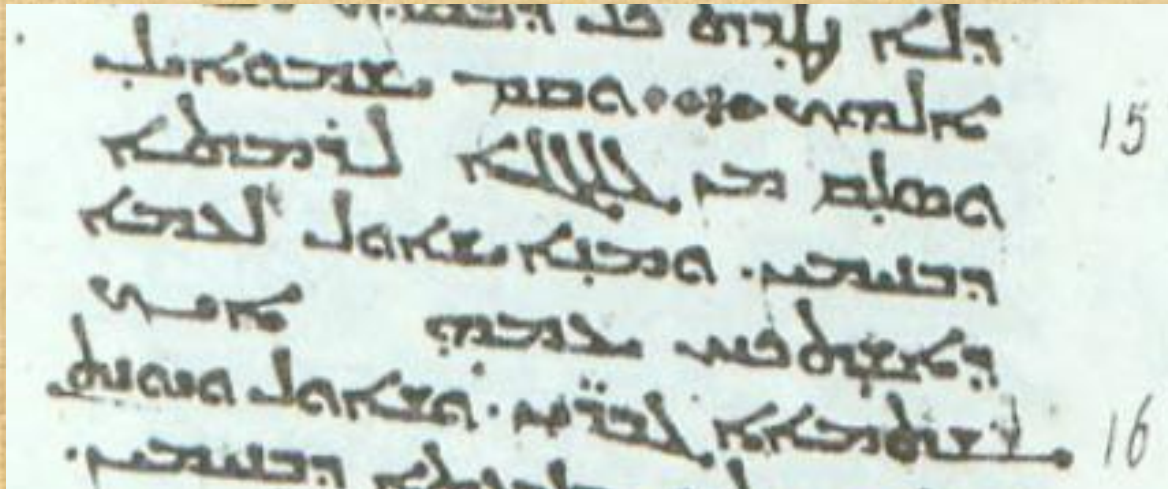 ܕܠܐ ܢܛܪܬ ܟܠ ܕܦܩܕܟ
ܐܠܗܟ܀ ܘܩܡ ܫܡܘܐܝܠ 15
ܘܣܠܩ ܡܢ ܓܠܓܠܐ ܠܪܡܬܐ
ܕܒܢܝܡܝܢ. ܘܡܢܐ ܫܐܘܠ ܠܥܡܐ
ܕܐܫܬܟܚ ܥܡܗ ܐܝܟ
ܫܬܡܐܐ ܓܒܪ̈ܝܢ. ܘܫܐܘܠ ܘܝܘܢܬ 16
ܕܒܢܝܡܝܢ.